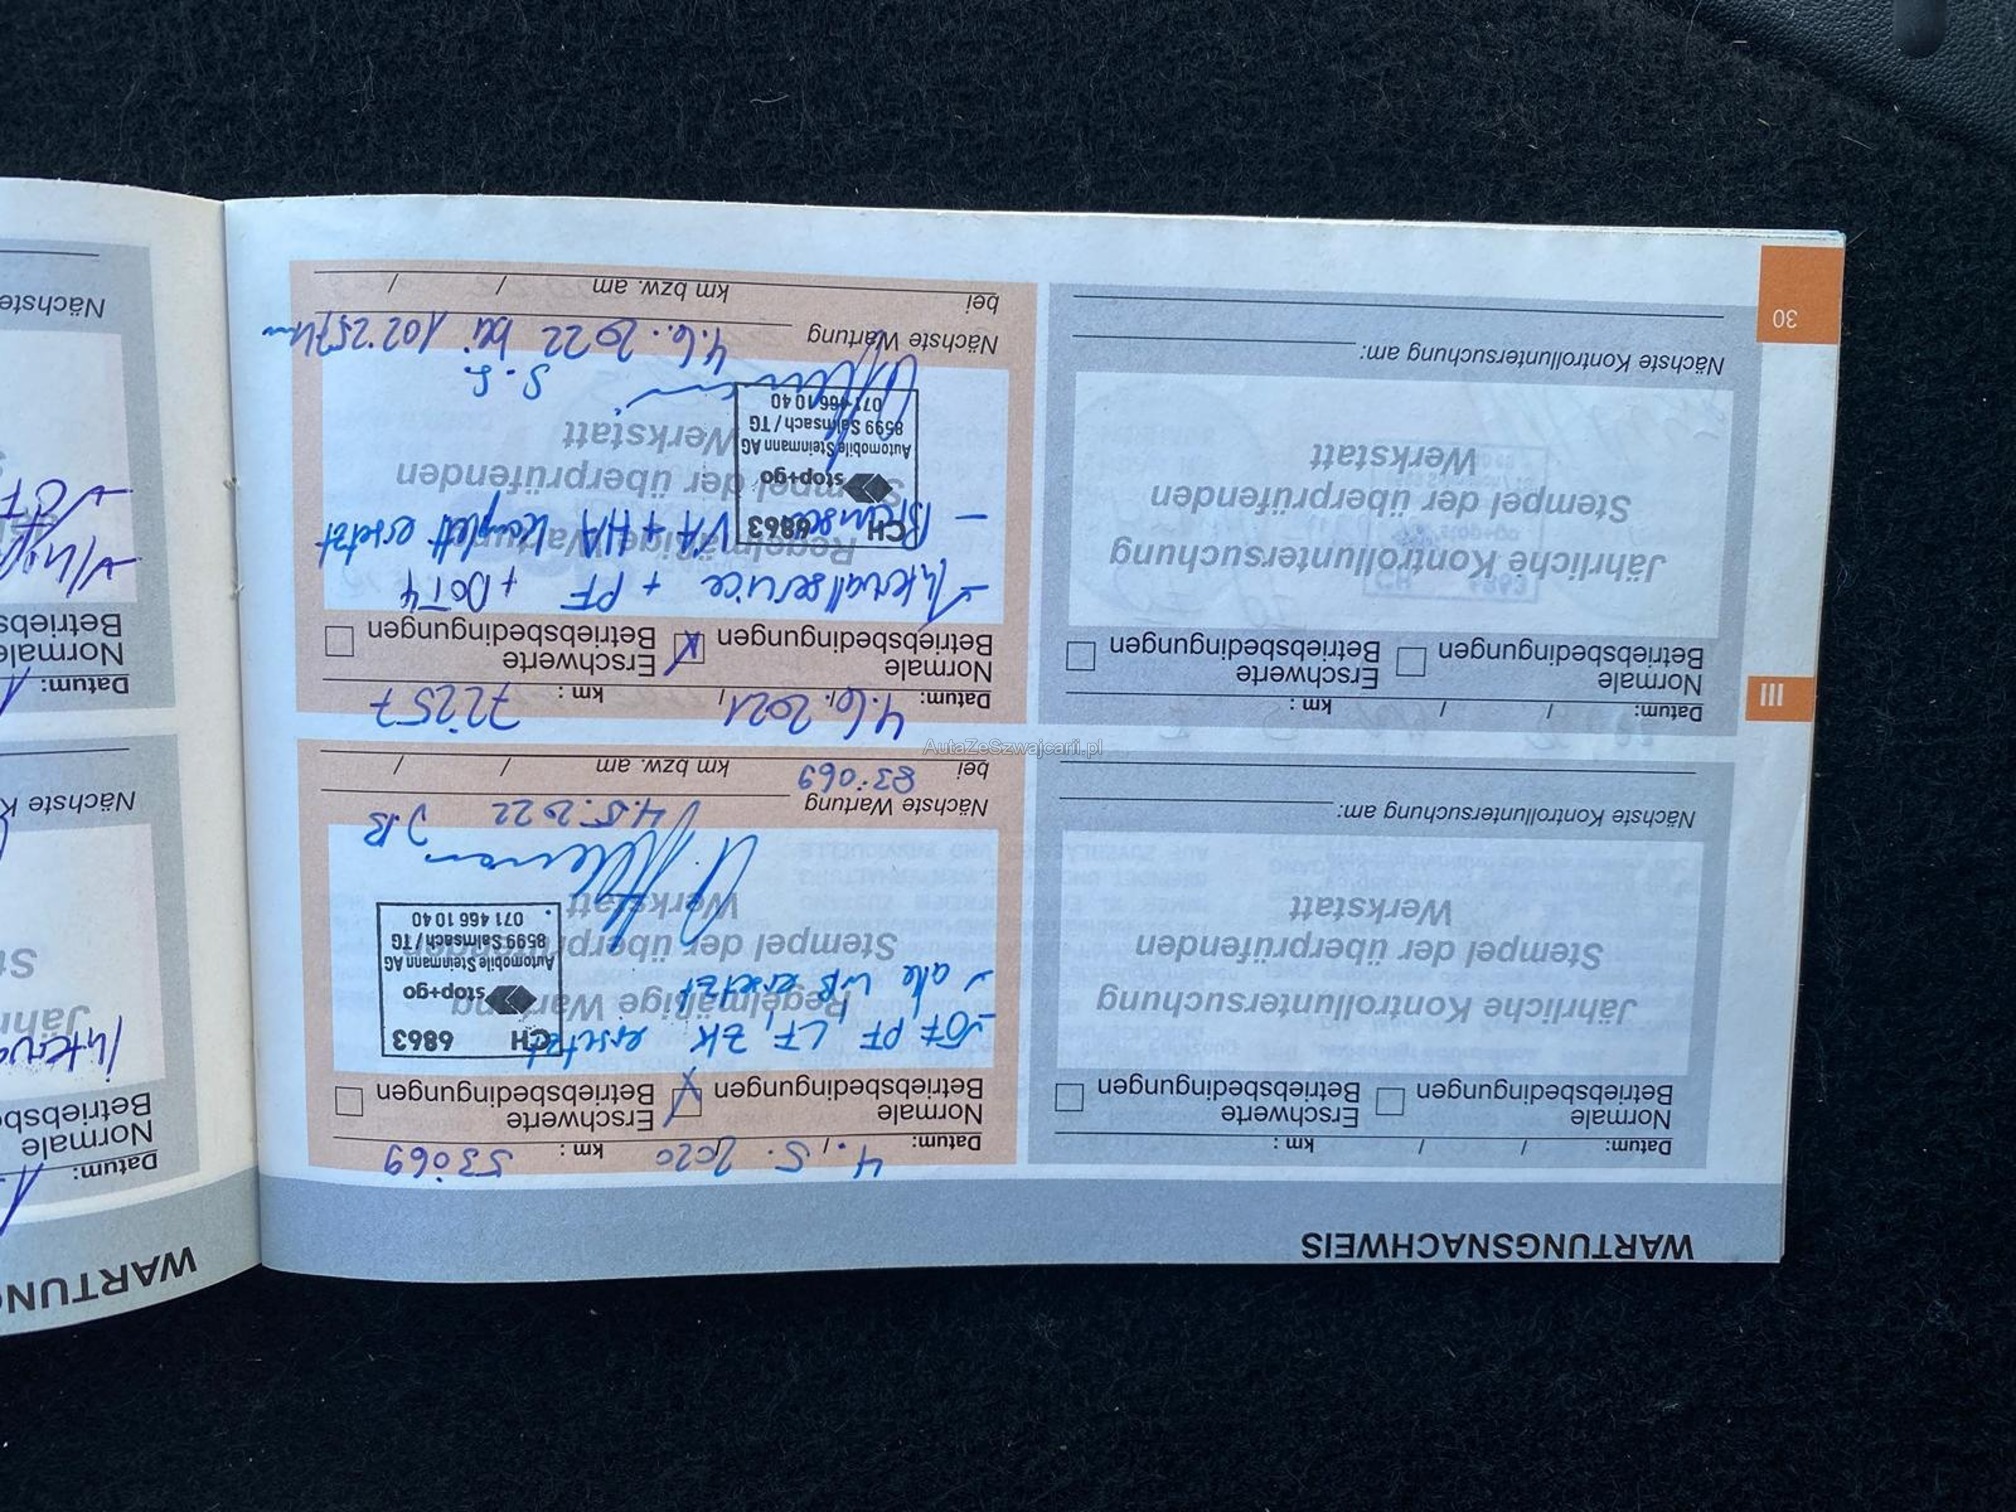 WARTUNGSNACHWEIS
Datum: / / km :
Normale
Betriebsbedingungen
Erschwerte
Betriebsbedingungen
Jährliche Kontrolluntersuchung
Stempel der überprüfenden
Werkstatt
Nächste Kontrolluntersuchung am:
Datum: 4. 5. 2020 km : 53069
Normale
Betriebsbedingungen
Erschwerte
Betriebsbedingungen
- ÖF, PF, LF, ZK ersetzt
- alle WB ersetzt
Regelmäßige Wartung
Stempel der überprüfenden
Werkstatt
CH 6863
stop+go
Automobile Steinmann AG
8599 Salmsach / TG
071 466 10 40
J.B
Nächste Wartung 4.5.2022
bei 83.069 km bzw. am / /
III
Datum: / / km :
Normale
Betriebsbedingungen
Erschwerte
Betriebsbedingungen
Jährliche Kontrolluntersuchung
Stempel der überprüfenden
Werkstatt
Nächste Kontrolluntersuchung am:
30
Datum: 4.6. 2021 km : 72257
Normale
Betriebsbedingungen
Erschwerte
Betriebsbedingungen
- Intervallservice + PF + DOT4
- Bremsen VA + HA komplett ersetzt
Regelmäßige Wartung
Stempel der überprüfenden
Werkstatt
CH 6863
stop+go
Automobile Steinmann AG
8599 Salmsach / TG
071 466 10 40
Nächste Wartung 4.6.2022 bei 102'257km
bei km bzw. am / /
WARTUN
Datum:
Normale
Betriebsb
Nächste K
Datum:
Normale
Betriebsb
Nächste
AutaZeSzwajcarii.pl